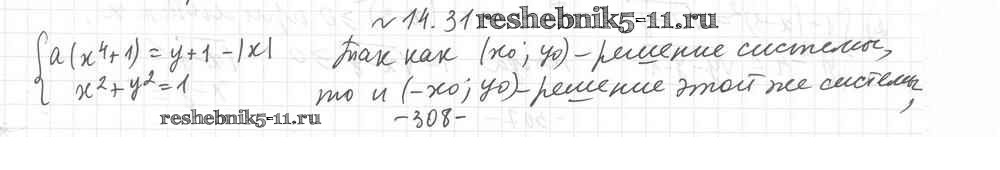 №14.31 reshebnik5-11.ru
{a(x⁴+1)=y+1-|x| Так как (x0; y0)-решение системы,
x²+y²=1 то и (-x0; y0)-решение этой же системы,
reshebnik5-11.ru -308-